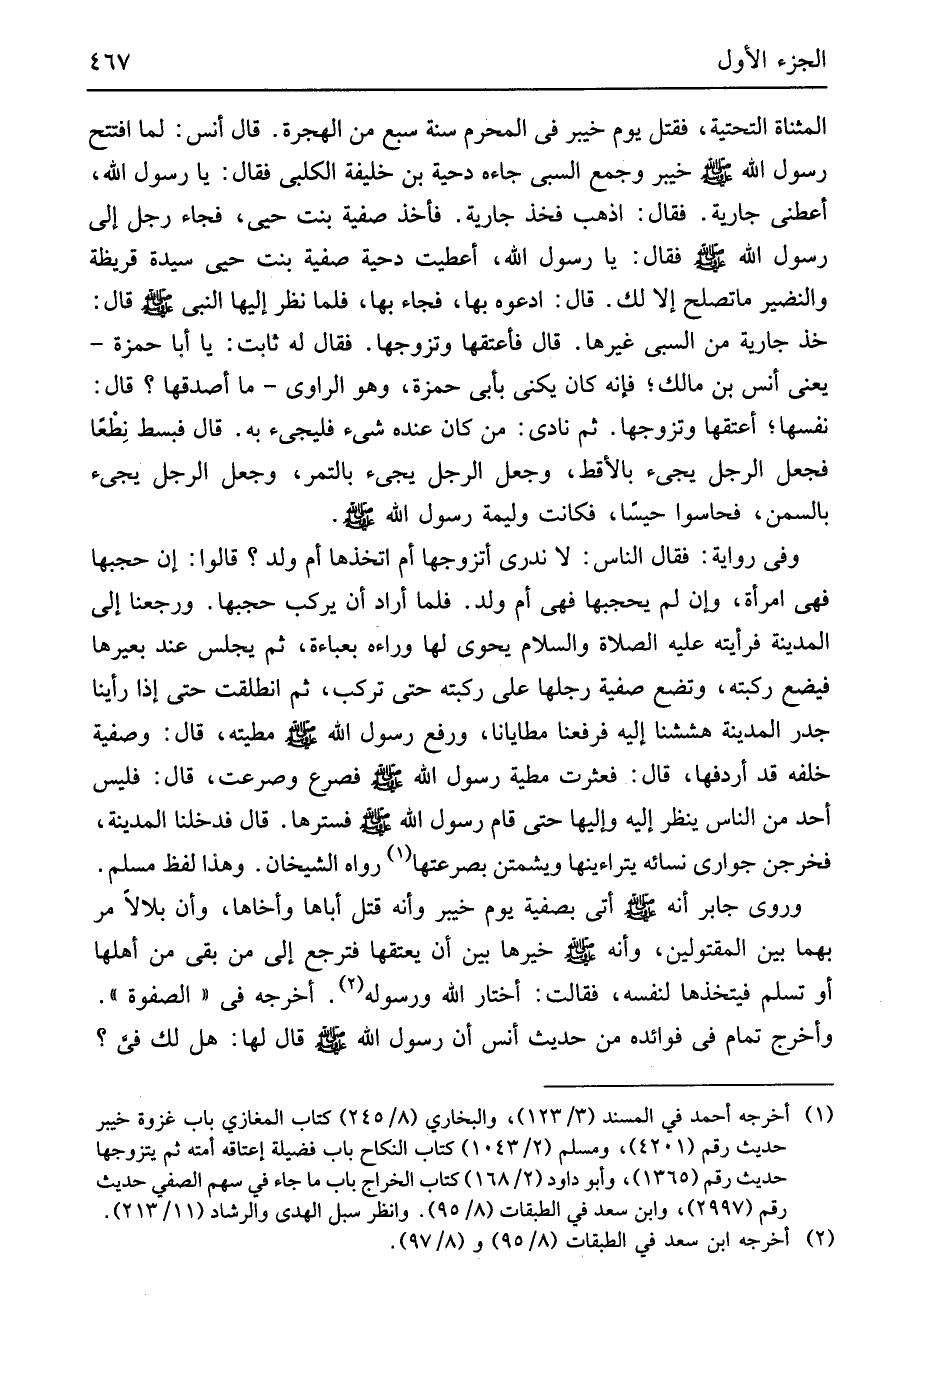 الجزء الأول ٤٦٧
المثناة التحتية، فقتل يوم خيبر فى المحرم سنة سبع من الهجرة. قال أنس: لما افتتح
رسول الله ﷺ خيبر وجمع السبى جاءه دحية بن خليفة الكلبى فقال: يا رسول الله،
أعطنى جارية. فقال: اذهب فخذ جارية. فأخذ صفية بنت حيى، فجاء رجل إلى
رسول الله ﷺ فقال: يا رسول الله، أعطيت دحية صفية بنت حيى سيدة قريظة
والنضير ماتصلح إلا لك. قال: ادعوه بها، فجاء بها، فلما نظر إليها النبى ﷺ قال:
خذ جارية من السبى غيرها. قال فأعتقها وتزوجها. فقال له ثابت: يا أبا حمزة –
يعنى أنس بن مالك؛ فإنه كان يكنى بأبى حمزة، وهو الراوى – ما أصدقها ؟ قال:
نفسها؛ أعتقها وتزوجها. ثم نادى: من كان عنده شىء فليجىء به. قال فبسط نِطْعًا
فجعل الرجل يجىء بالأقط، وجعل الرجل يجىء بالتمر، وجعل الرجل يجىء
بالسمن، فحاسوا حيسًا، فكانت وليمة رسول الله ﷺ.
وفى رواية: فقال الناس: لا ندرى أتزوجها أم اتخذها أم ولد ؟ قالوا: إن حجبها
فهى امرأة، وإن لم يحجبها فهى أم ولد. فلما أراد أن يركب حجبها. ورجعنا إلى
المدينة فرأيته عليه الصلاة والسلام يحوى لها وراءه بعباءة، ثم يجلس عند بعيرها
فيضع ركبته، وتضع صفية رجلها على ركبته حتى تركب، ثم انطلقت حتى إذا رأينا
جدر المدينة هششنا إليه فرفعنا مطايانا، ورفع رسول الله ﷺ مطيته، قال: وصفية
خلفه قد أردفها، قال: فعثرت مطية رسول الله ﷺ فصرع وصرعت، قال: فليس
أحد من الناس ينظر إليه وإليها حتى قام رسول الله ﷺ فسترها. قال فدخلنا المدينة،
فخرجن جوارى نسائه يتراءينها ويشمتن بصرعتها(١) رواه الشيخان. وهذا لفظ مسلم.
وروى جابر أنه ﷺ أتى بصفية يوم خيبر وأنه قتل أباها وأخاها، وأن بلالاً مر
بهما بين المقتولين، وأنه ﷺ خيرها بين أن يعتقها فترجع إلى من بقى من أهلها
أو تسلم فيتخذها لنفسه، فقالت: أختار الله ورسوله(٢). أخرجه فى « الصفوة ».
وأخرج تمام فى فوائده من حديث أنس أن رسول الله ﷺ قال لها: هل لك فىّ ؟
(١) أخرجه أحمد في المسند (٣/ ١٢٣)، والبخاري (٨/ ٢٤٥) كتاب المغازي باب غزوة خيبر
حديث رقم (٤٢٠١)، ومسلم (٢/ ١٠٤٣) كتاب النكاح باب فضيلة إعتاقه أمته ثم يتزوجها
حديث رقم (١٣٦٥)، وأبو داود (٢/ ١٦٨) كتاب الخراج باب ما جاء في سهم الصفي حديث
رقم (٢٩٩٧)، وابن سعد في الطبقات (٨/ ٩٥). وانظر سبل الهدى والرشاد (١١/ ٢١٣).
(٢) أخرجه ابن سعد في الطبقات (٨/ ٩٥) و (٨/ ٩٧).